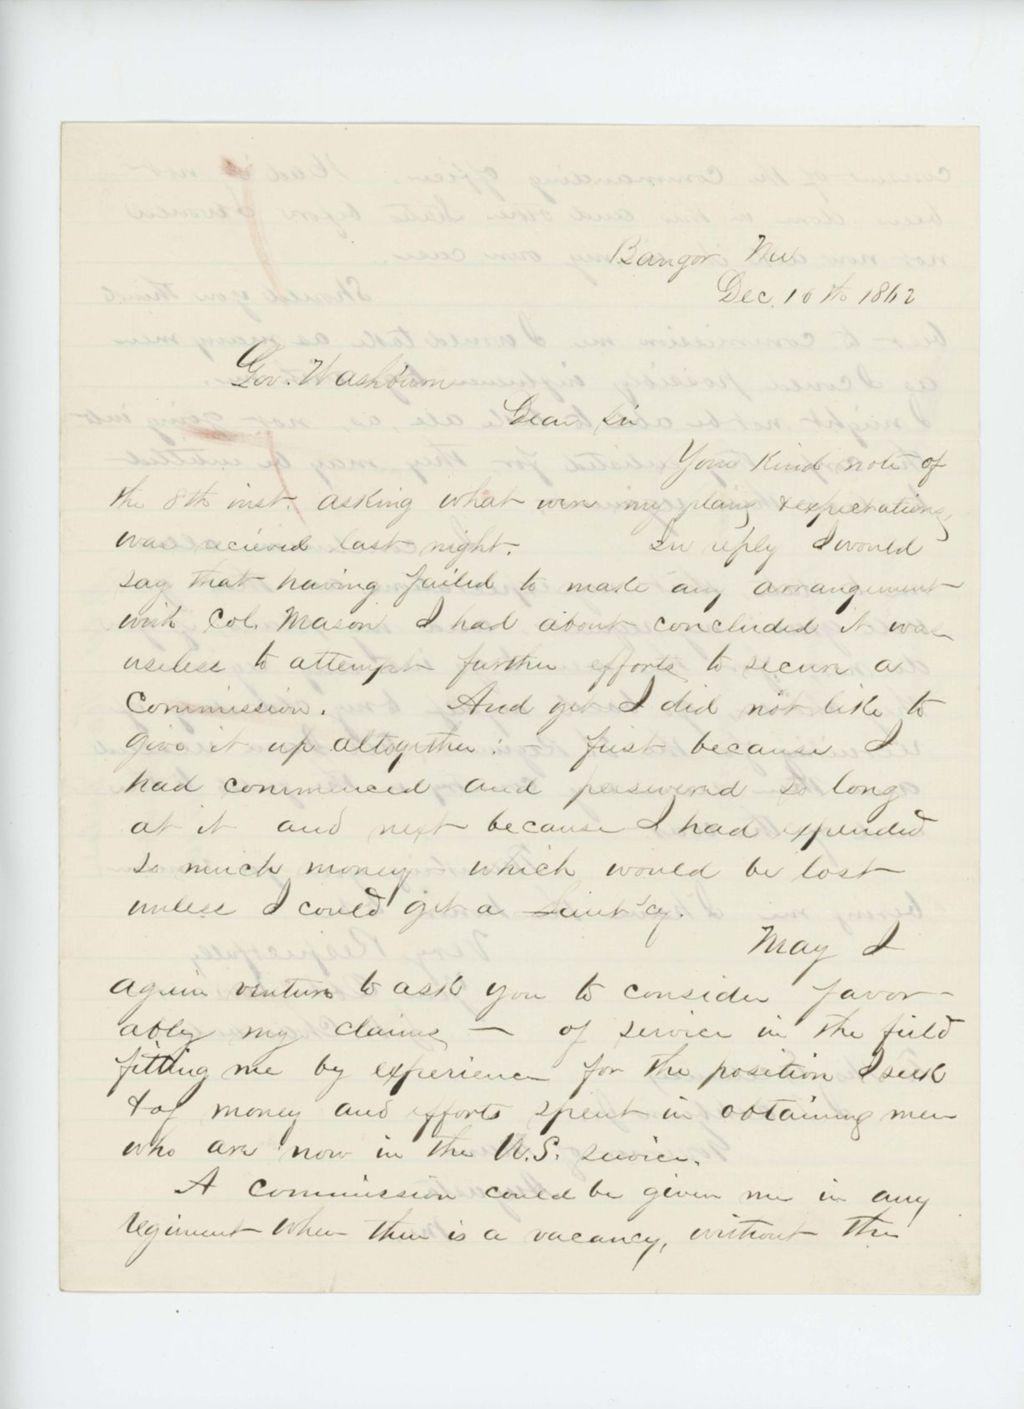 Bangor Me
Dec. 10th 1862
Gov. Washburn
Dear Sir
Your kind note of
the 8th inst. asking what were my plans & expectations,
was recieved last night. In reply I would
say that having failed to make any arrangement
with Col. Mason I had about concluded it was
useless to attempt further efforts to secure a
Commission. And yet I did not like to
give it up altogether: - first because I
had commenced and persevered so long
at it and next because I had expended
so much money which would be lost
unless I could get a Lieut'cy.
May I
again venture to ask you to consider favor-
ably my claims — of service in the field
fitting me by experience for the position I seek
& of money and efforts spent in obtaining men
who are now in the U.S. service.
A commission could be given me in any
regiment when there is a vacancy, without the